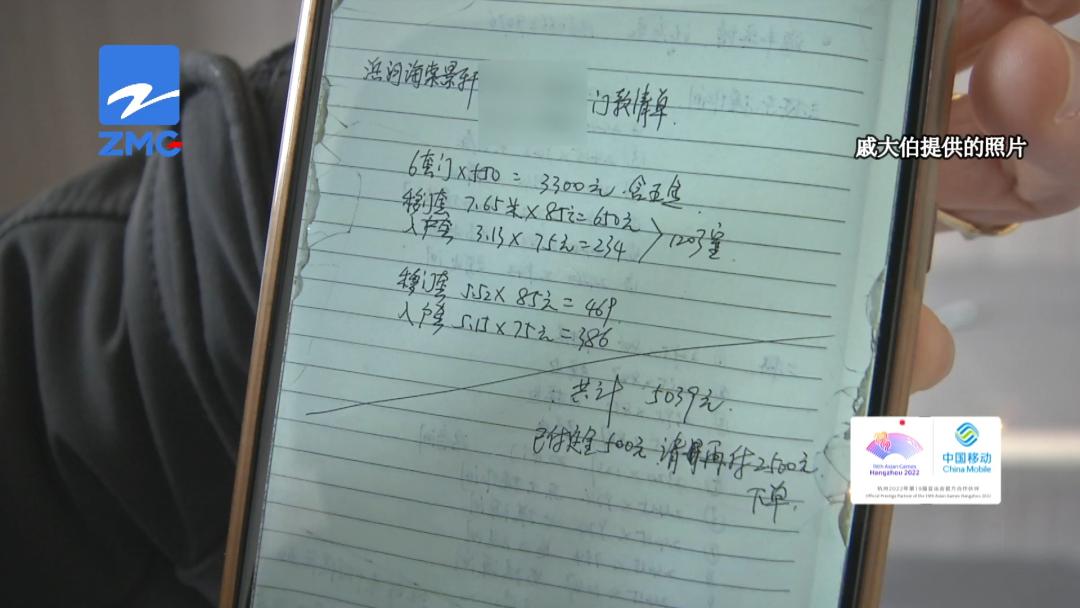 ZMC
戚大伯提供的照片
滨河海棠景轩 门款清单.
6套门×550=3300元.含五金.
移门套 7.65米×85元=650元
入户套 3.13×75元=234
1203室.
移门套 5.52×85元=469
入户套 5.15×75元=386
共计 5039元.
已付定金500元 请再付2500元
下单.
19th Asian Games
Hangzhou 2022
中国移动
China Mobile
杭州2022年第19届亚运会官方合作伙伴
Official Prestige Partner of the 19th Asian Games Hangzhou 2022